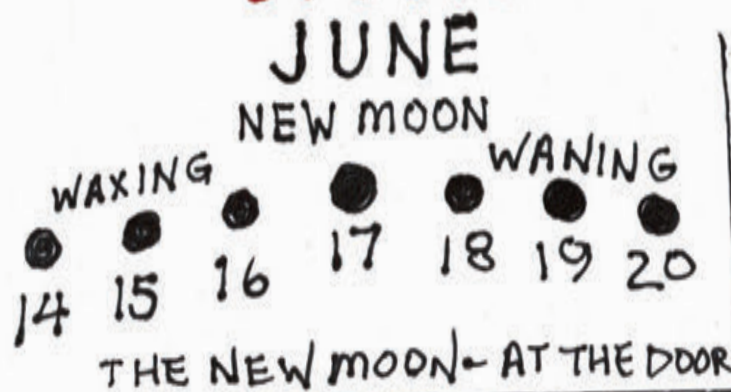 JUNE
NEW MOON
WAXING WANING
14 15 16 17 18 19 20
THE NEW MOON - AT THE DOOR